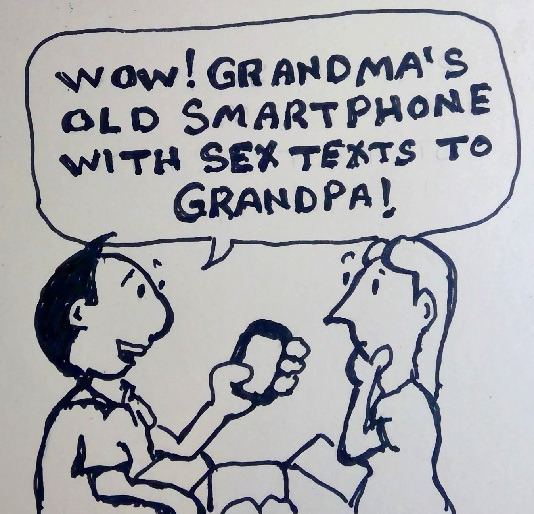 WOW! GRANDMA'S
OLD SMARTPHONE
WITH SEX TEXTS TO
GRANDPA!